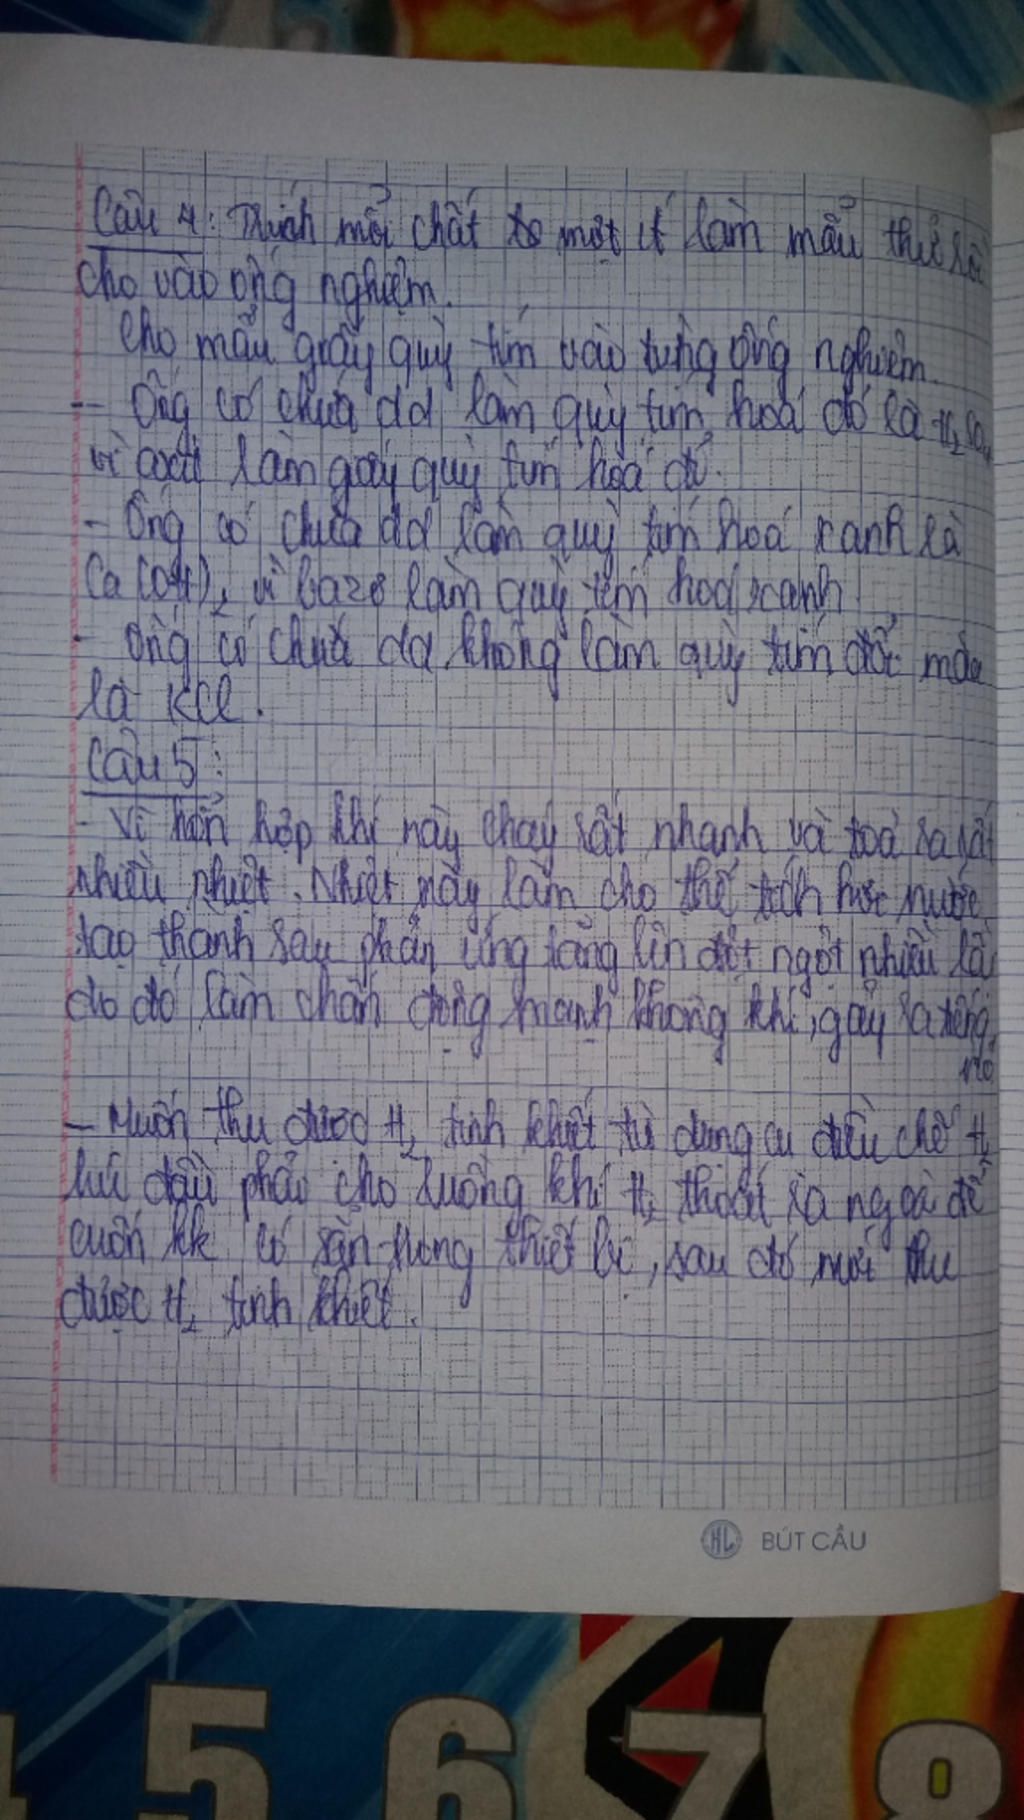 Câu 4: Trích mỗi chất một ít làm mẫu thử rồi
cho vào ống nghiệm.
Cho mẩu giấy quỳ tím vào từng ống nghiệm.
- Ống có chứa dd làm quỳ tím hoá đỏ là H₂SO₄
vì axit làm giấy quỳ tím hoá đỏ.
- Ống có chứa dd làm quỳ tím hoá xanh là
Ca(OH)₂ vì bazơ làm quỳ tím hoá xanh.
- Ống có chứa dd không làm quỳ tím đổi màu
là KCl.
Câu 5:
- Vì hỗn hợp khí này cháy rất nhanh và toả ra rất
nhiều nhiệt. Nhiệt này làm cho thể tích hơi nước
tạo thành sau phản ứng tăng lên đột ngột nhiều lần
do đó làm chấn động mạnh không khí, gây ra tiếng
nổ
- Muốn thu được H₂ tinh khiết từ dụng cụ điều chế H₂
lúc đầu phải cho luồng khí H₂ thoát ra ngoài để
cuốn kk có sẵn trong thiết bị, sau đó mới thu
được H₂ tinh khiết.
HL BÚT CẦU
5 6 7 8